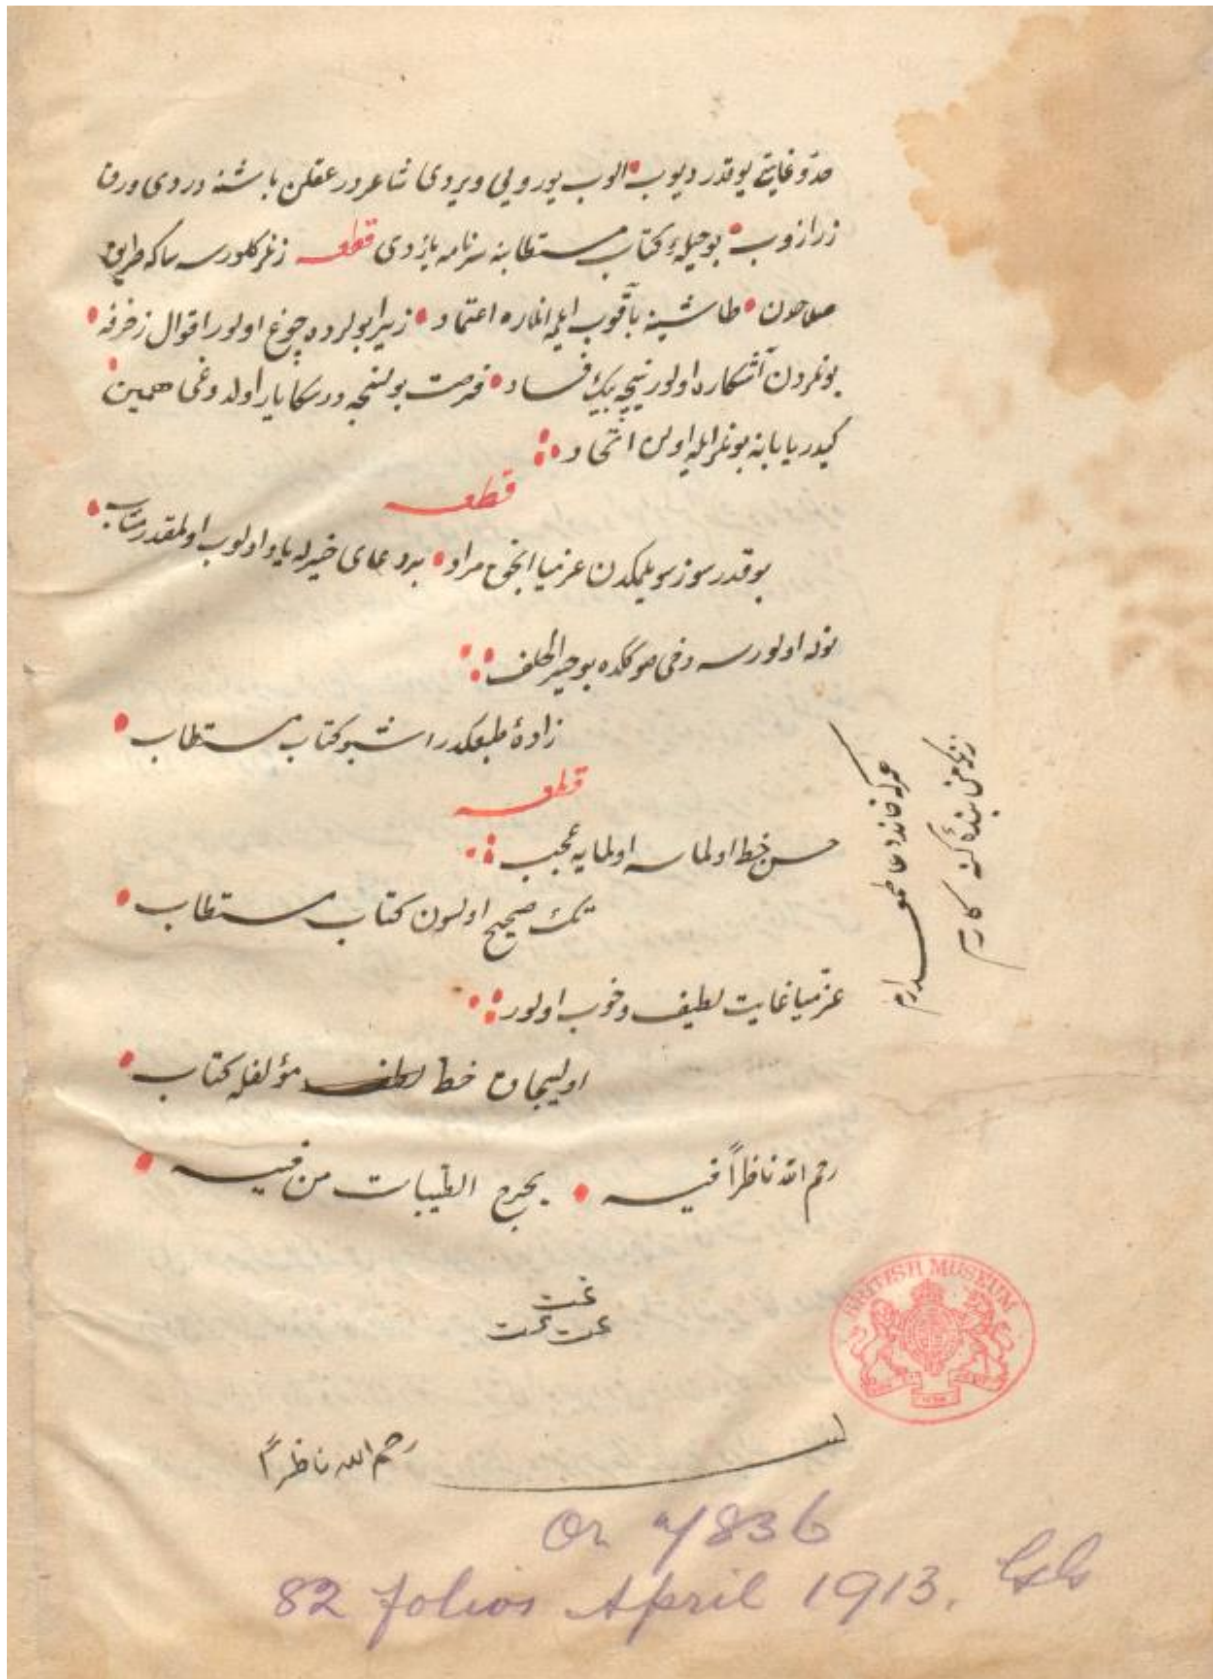 حد و غایتی یوقدر دیوب الوب یورویی ویردی شاعر در عقلن باشنه دردی ورق
زرازوب بو حیله کتاب مستطابه سرنامه یازدی قطعه زنلر کلورسه ساکه طریق
صلاحدن طاشینه باقوب ایله انلره اعتماد زیرا بولرده چوغ اولور اقوال زخرفه
بونلردن آشکاره اولور نیچه بیك فساد فرصت بولنجه در سکا یار اولدوغی همین
کیدر یابانه بونلر ایله اولن اتحاد
قطعه
بو قدر سوز سویلمکدن عزمیا انجق مراد بر دعای خیرله یاد اولوب اولمقدر مثاب
نوله اولورسه دخی صوکده بو خیر الخلف
زادهٔ طبعکدر اشبو کتاب مستطاب
قطعه
حسن خط اولماسه اولمایه عجب
تك صحیح اولسون کتاب مستطاب
عزمیا غایت لطیف و خوب اولور
اولیجان خط مؤلفله کتاب
رحم الله ناظراً فیه یخرج الطیبات من فیه
تمت
تمت تمت
هرکه خواند دعا طمع دارم
زانکه من بندهٔ کنه کارم
رحم الله ناظراً
BRITISH MUSEUM
Or 7836
82 folios April 1913.